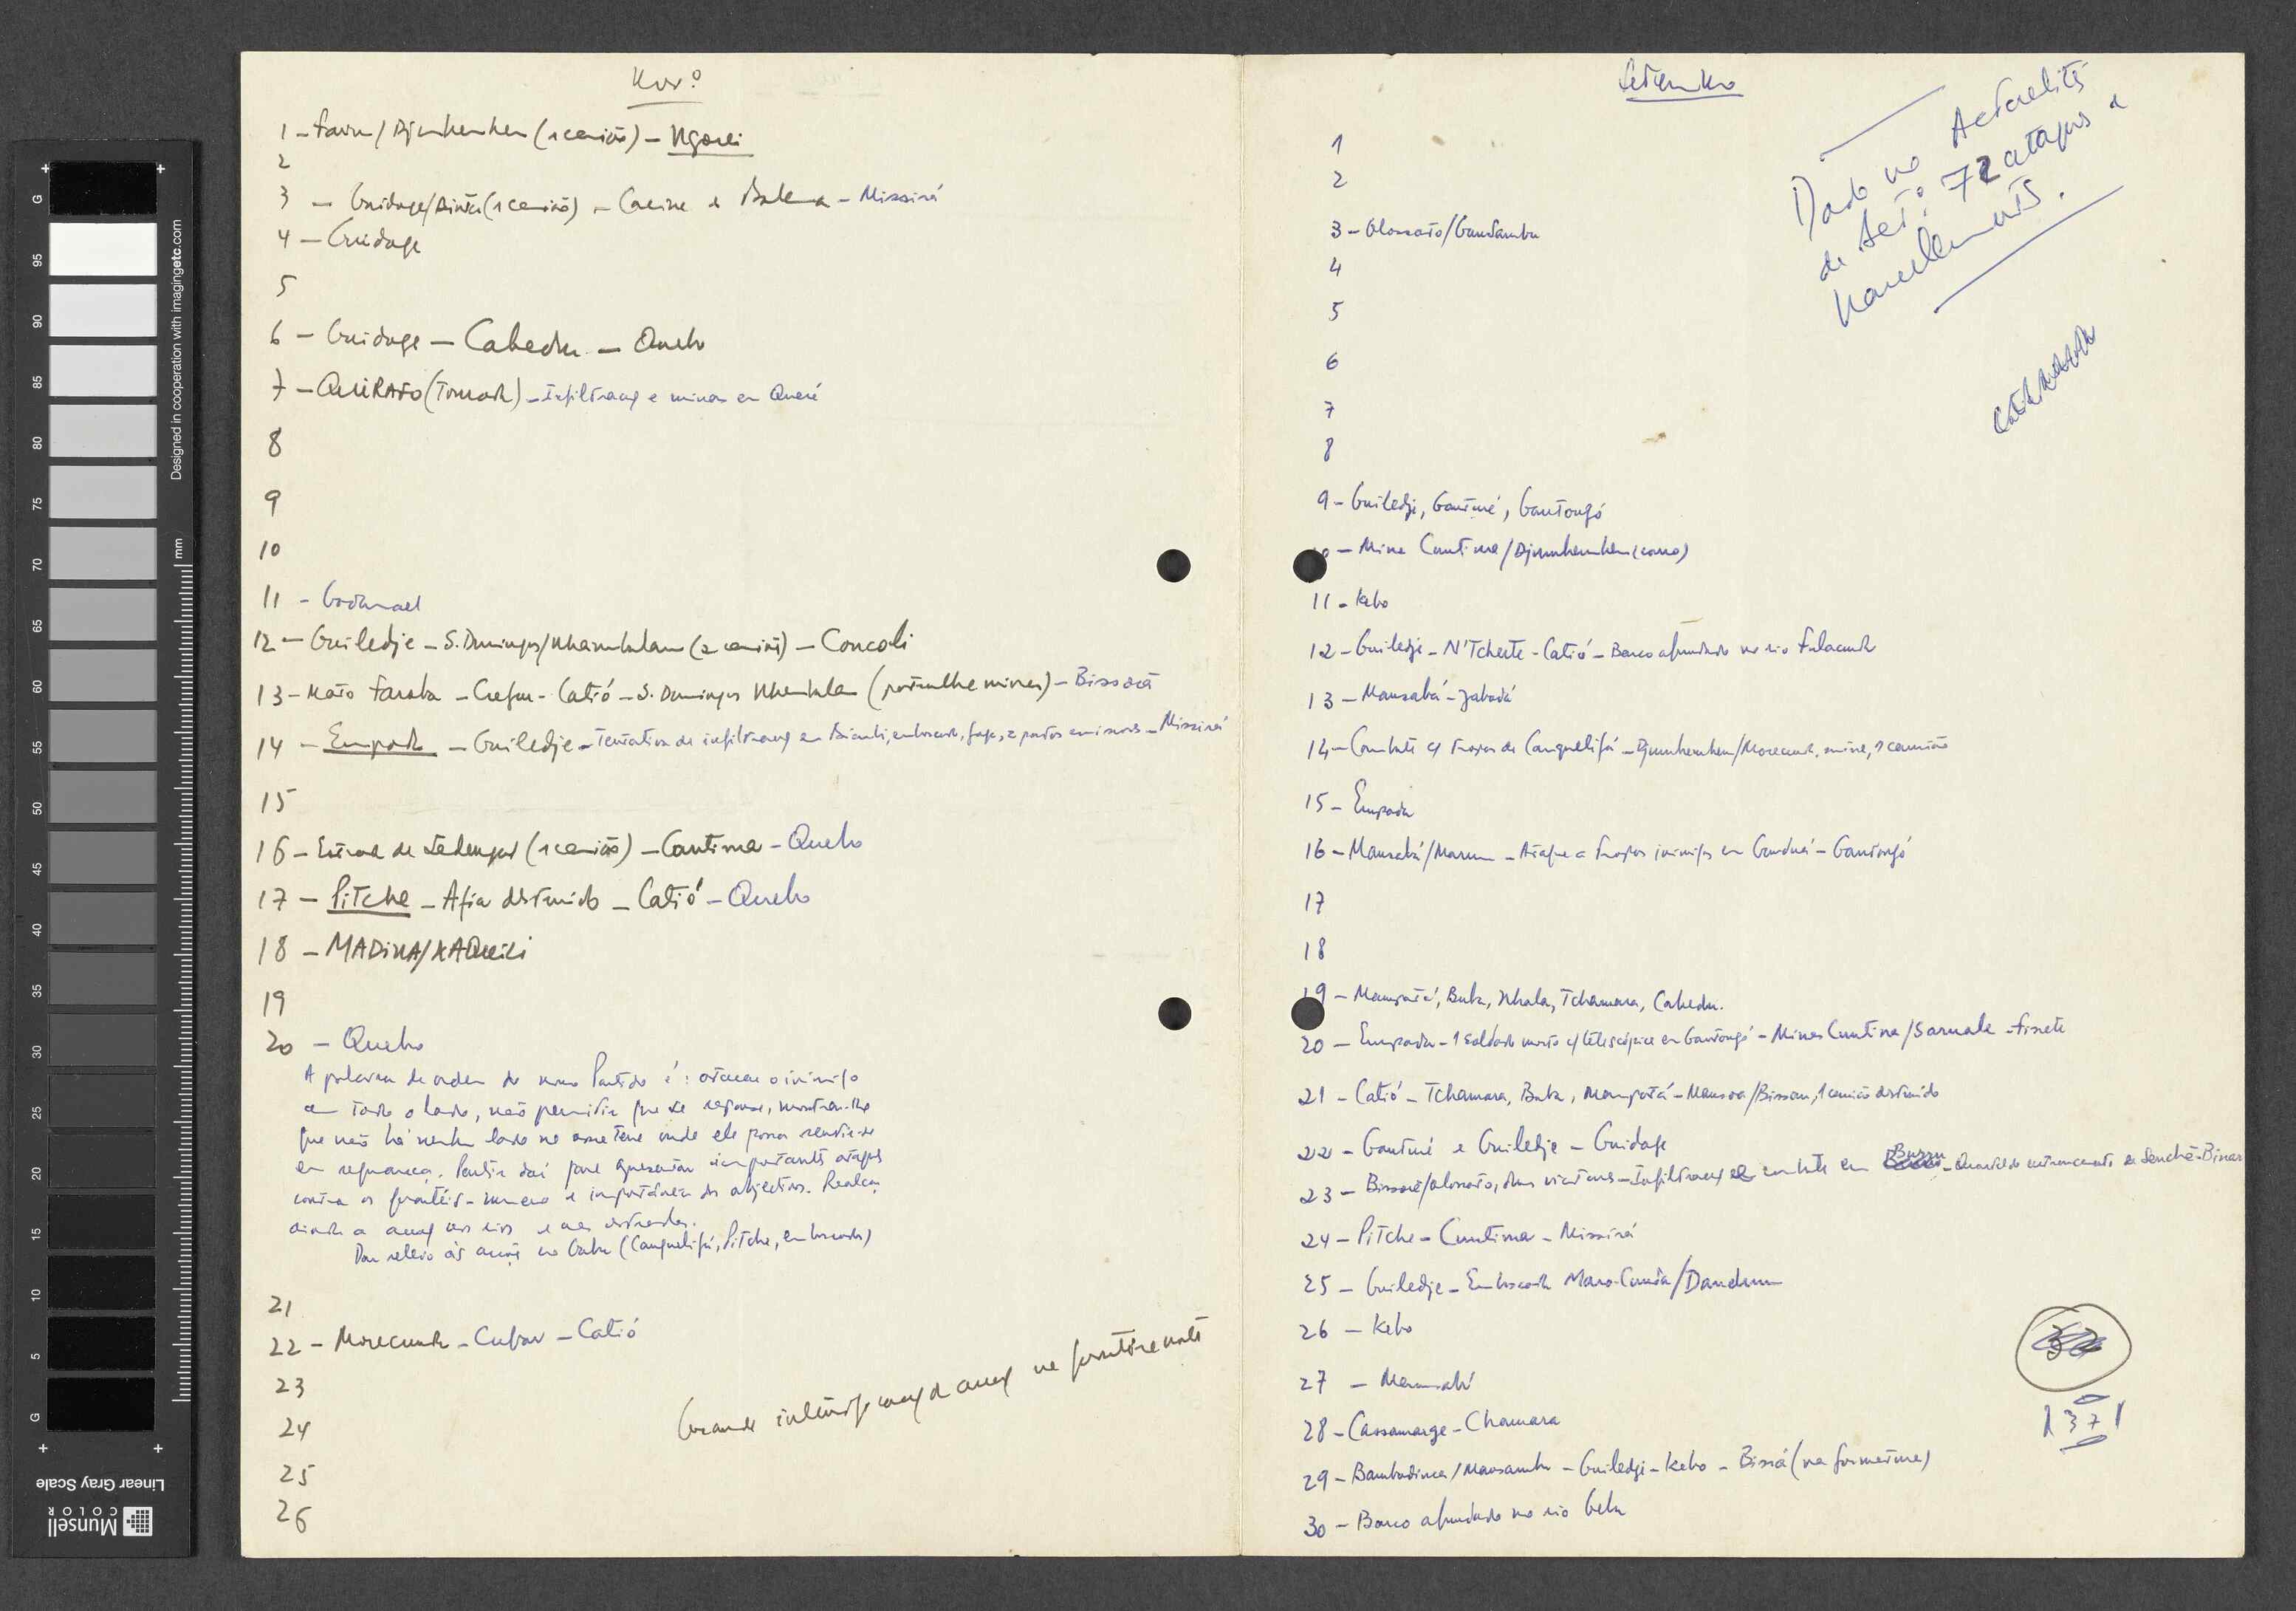 Nov.º
1 - Farim/Djumbembem (1 camião) - Ngorei
2
3 - Guidage/Binta (1 camião) - Cacine e Balana - Missirá
4 - Guidage
5
6 - Guidage - Cabedu - Quebo
7 - QUERAFO (Tomada) - Infiltração e minas em Queré
8
9
10
11 - Godamael
12 - Guiledje - S. Domingos/Nhambalam (2 camiões) - Concoli
13 - Mato Faroba - Cufar - Catió - S. Domingos Nhambalam (patrulha minas) - Bissorã
14 - Empada - Guiledje - Tentativa de infiltração em Bianti, emboscada, fuga, 2 postos emissores - Missirá
15
16 - Estrada de Sedengal (1 camião) - Contima - Quebo
17 - Pitche - Afia destruido - Catió - Quebo
18 - MADINA/XAQUILI
19
20 - Quebo
A palavra de ordem do nosso Partido é: atacar o inimigo
em todo o lado, não permitir que se reponse, mostrar-lhe
que não há nenhum lado na nossa terra onde ele possa sentir-se
em segurança. Partir daí para apresentar importantes ataques
contra os quartéis - número e importância dos objectivos. Realçar
ainda a acção nos rios e nas estradas.
Dar relevo às acções no Gabu (Canquelifá, Pitche, emboscada)
21
22 - Morecunda - Cufar - Catió
23
24
25
26
Grande intensificação da acção na fronteira norte
Setembro
Dado no Actualités
de Set.º 72 ataques e
harcelements.
1
2
3 - Olossato/Gansambu
4
5
6
7
8
9 - Guiledje, Ganturé, Gantongó
10 - Mina Cuntima/Djumbembem (carro)
11 - Kebo
12 - Guiledje - N'Tchette - Catió - Barco afundado no rio Fulacunda
13 - Mansabá - Jabadá
14 - Combate c/ tropas de Canquelifá - Djumbembem/Morecunda, mina, 1 camião
15 - Empada
16 - Mansabá/Manun - Ataque a tropas inimigas em Ganduá - Gantongó
17
18
19 - Mampatá, Buba, Nhala, Tchamara, Cabedu.
20 - Empada - 1 soldado morto c/ telescópica em Gantongó - Minas Cuntima/Sarnate - Fissete
21 - Catió - Tchamara, Buba, Mampatá - Mansoa/Bissau, 1 camião destruido
22 - Ganturé e Guiledje - Guidage
23 - Bissorã/Olossato, duas viaturas - Infiltração e combate em Burru - Quartel de entroncamento de Senchã-Binar
24 - Pitche - Cuntima - Missirá
25 - Guiledje - Emboscada Maro-Cunda/Dandum
26 - Kebo
27 - Mansabá
28 - Cassamarge - Chamara
29 - Bambadinca/Mansambo - Guiledje - Kebo - Bissá
30 - Barco afundado no rio Geba
1371
Designed in cooperation with imagingetc.com
mm
G 95 90 85 80 75 70 65 60 55 50 45 40 35 30 25 20 15 10 5 G
Linear Gray Scale
Munsell
COLOR